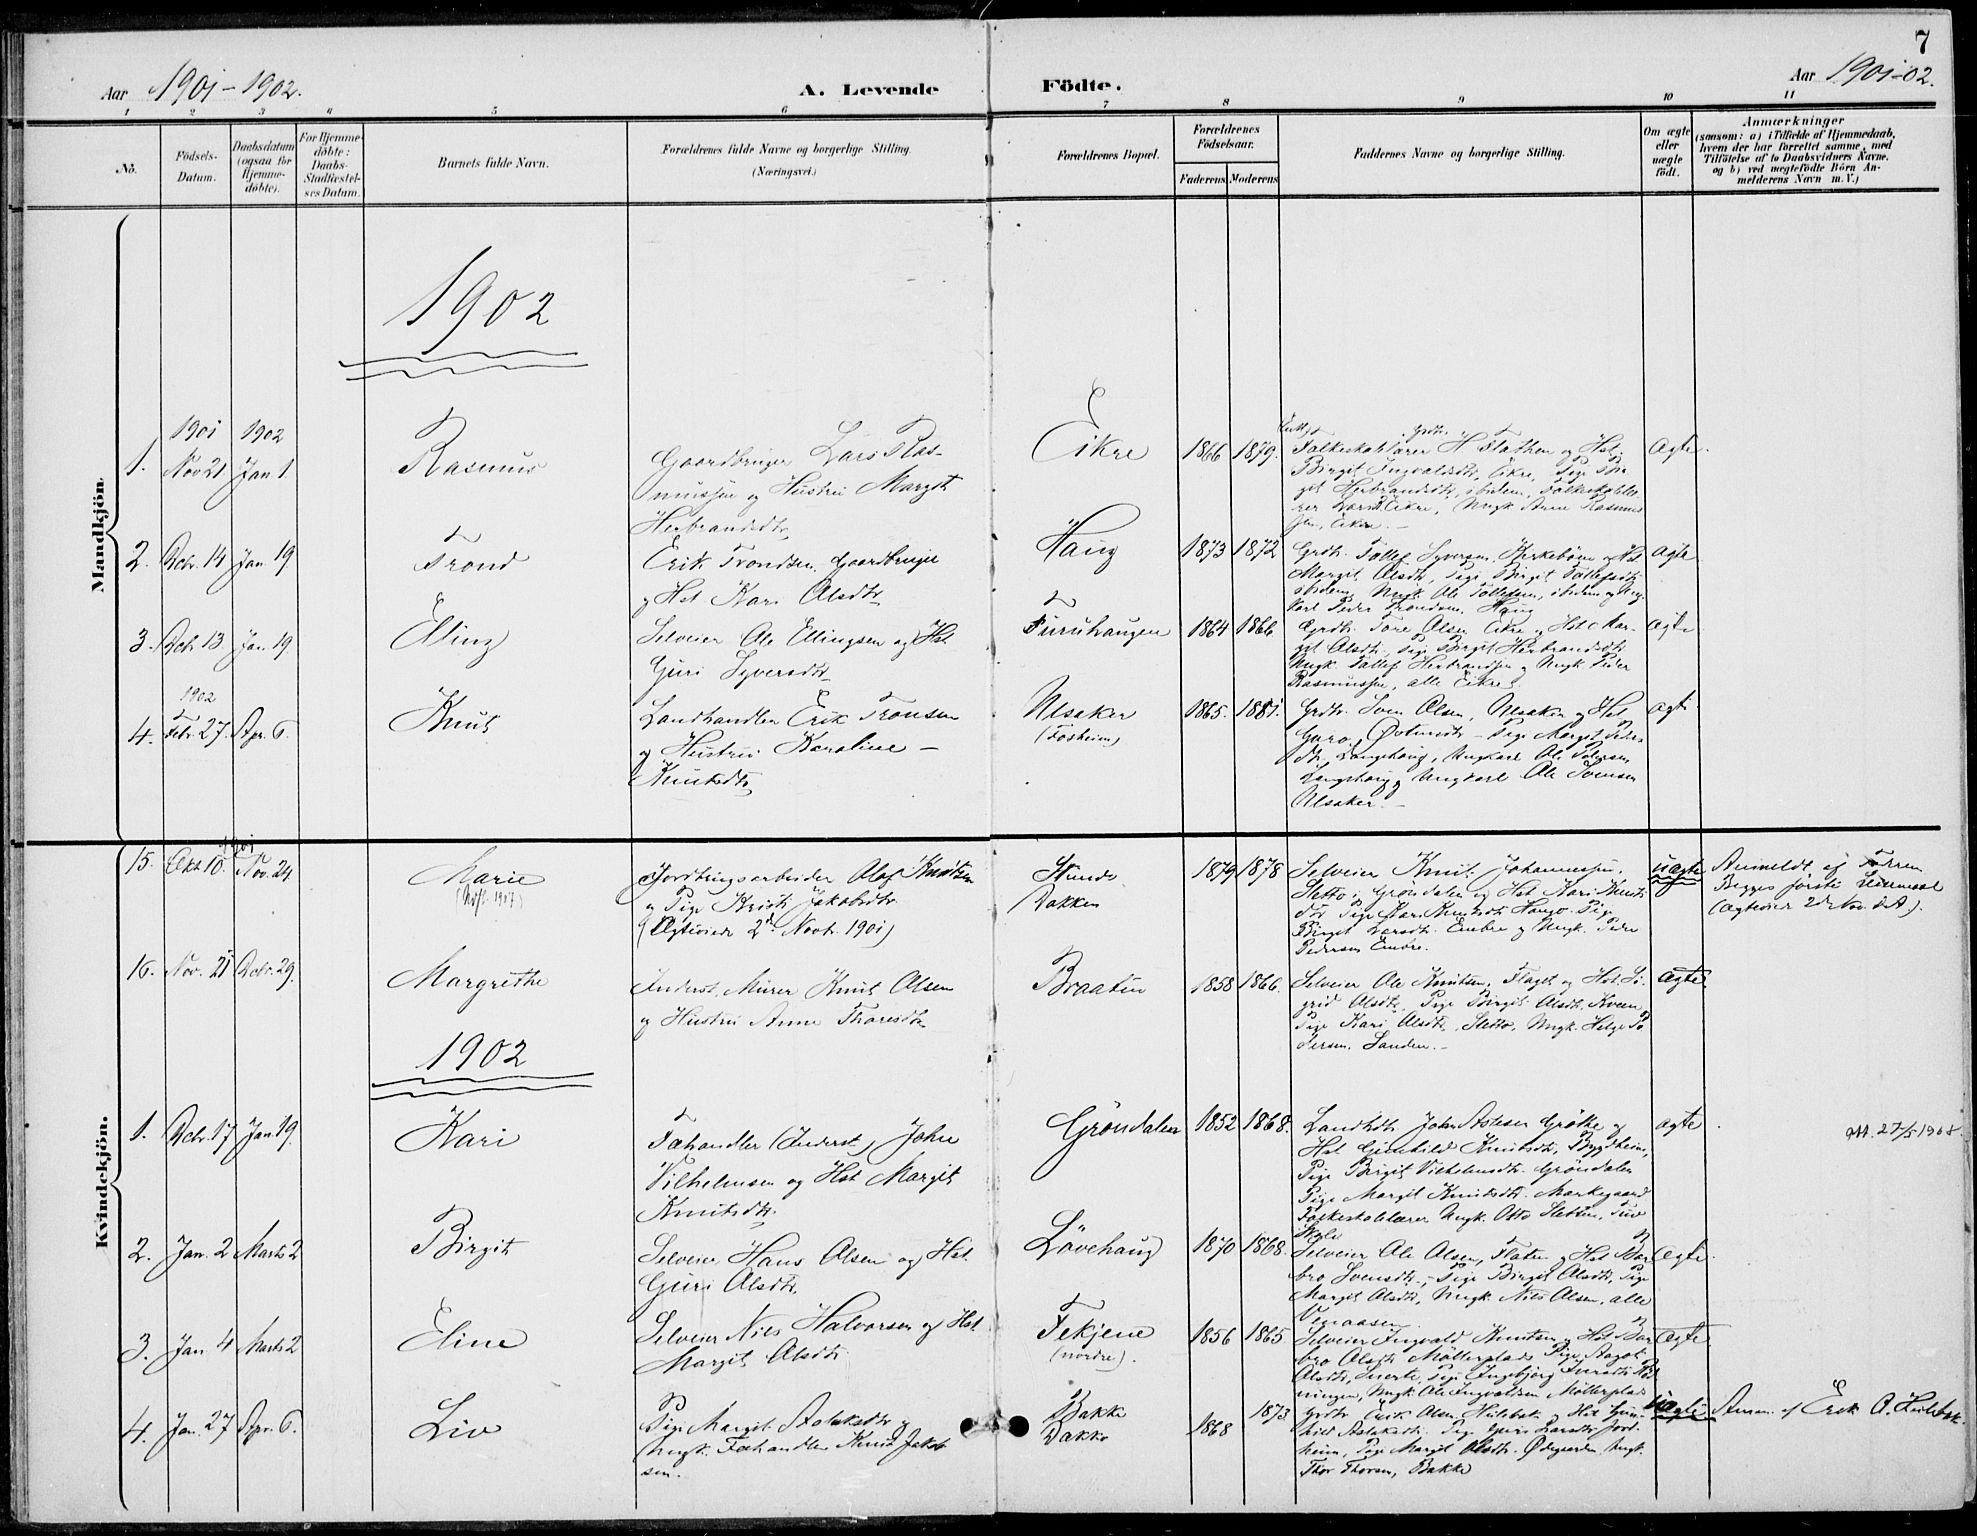 7
Aar 1901-1902.
A. Levende
Födte.
Aar 1901-02.
1 2 3 4 5 6 7 8 9 10 11
No.
Födsels-
Datum.
Daabsdatum
(ogsaa for
Hjemme-
döbte).
For Hjemme-
döbte:
Daabs-
Stadfæstel-
ses Datum.
Barnets fulde Navn.
Forældrenes fulde Navne og borgerlige Stilling.
(Næringsvei.)
Forældrenes Bopæl.
Forældrenes
Födselsaar.
Faderens Moderens
Faddernes Navne og borgerlige Stilling.
Om ægte
eller
uægte
födt.
Anmærkninger
(saasom: a) i Tilfælde af Hjemmedaab,
hvem der har forrettet samme, med
Tilföielse af to Daabsvidners Navne,
og b) ved uægtefödte Börn An-
melderens Navn m. V.)
Mandkjön.
1902
1901 1902
1. Nov 21 Jan 1.
Rasmus
Gaardbruger Lars Ras-
mussen og Hustru Margit
Herbrandsdtr.
Eikre
1866 1879.
Folkeskolelærer H Flathen og Hst.
Birgit Ingvaldsdtr, Eikre, Pige Bir
git Herbrandsdtr, ibidem, Folkeskolelæ
rer Lars Eikre, Ungk. Arne Rasmus
sen, Eikre. -
ægte.
2. Dcbr. 14 Jan. 19
Trond
Erik Trondsen, Gaardbruger
og Hst Kari Olsdtr
Haug
1873 1872
Grdbr. Tollef Syversen, Kirkebøen og Hst
Margit Olsdtr, Pige Birgit Tollefsdtr
ibidem, Ungk. Ole Tollefsen, ibidem og Ung
karl Peder Trondsen, Haug
ægte
3. Dcbr 13 Jan. 19
Elling
Selveier Ole Ellingsen og Hst.
Guri Syversdtr
Furuhaugen
1864 1866
Grdbr. Tore Olsen Eikre og Hst Mar-
git Olsdtr, Pige Birgit Herbrandsdtr
Ungk. Tollef Herbrandsen og Ungk. Peder
Rasmussen, alle Eikre
ægte
1902
4. Febr. 27. Apr. 6.
Knut
Landhandler Erik Tronsen
og Hustru Karoline -
Knutsdtr
Ulsaker
(Fosheim)
1865. 1881.
Grdbr. Sven Olsen, Ulsaker og Hst
Guro Østensdtr - Pige Margit Peders
dtr, Langehaug, Ungkarl Ole
Langehaug og Ungkarl Ole Svensen
Ulsaker. -
ægte
Kvindekjön.
1901
15. Okt 10. Nov. 24.
Marie
1917)
Jordbrugsarbeider Olaf Knutsen
og Pige Kristi Jakobsdtr.
(Ægteviede 2d Novb. 1901)
Bakken
1879 1878
Selveier Knut Johannessen,
Sletto i Grøndalen og Hst Kari Knuts
dtr Pige Kari Knutsdtr Haugo. Pige
Birgit Larsdtr. Embre og Ungk. Peder
Pedersen Embre.
uægte
Anmeldt af
Begges første Leiermaal
(Ægteviet 2de Nov. d. A).
16. Nov. 21 Dcbr. 29.
Margrethe
Inderst, Murer Knut Olsen
og Hustru Anne Thoresdtr
Braaten
1858 1866.
Selveier Ole Knutsen, Flaget og Hst Si-
grid Olsdtr, Pige Birgit Olsdtr, Kveen
Pige Kari Olsdtr, Sletto, Ungk. Helge Pe
dersen, Sanden. -
ægte
1902
1. Dcbr. 17 Jan 19.
Kari
Fæhandler (Inderst) John
Vilhelmsen og Hst Margit
Knutsdtr.
Grøndalen
1852 1868.
Landhdlr. John Grøthe og
Hst Gunhild Knutsdtr, Bygdheim,
Pige Birgit Vilhelmsdtr. Grøndalen
Pige Margit Knutsdtr. Markegaard
Folkeskolelærer Ungk. Otto Sletten, Tuv
Skole
ægte
Att. 27/5 1908.
2. Jan. 2 Marts 2
Birgit
Selveier Hans Olsen og Hst.
Guri Olsdtr.
Løvehaug
1870 1868.
Selveier Ole Olsen, Flaten og Hst Bar
bro Svensdtr, - Pige Birgit Olsdtr, Pige
Margit Olsdtr, Ungk. Nils Olsen, alle
Venaasen
ægte.
3. Jan 4 Marts 2
Eline
Selveier Nils Halvorsen og Hst
Margit Olsdtr
Tekjene
(nordre).
1856 1865
Selveier Ingvald Knutsen og Hst Bar
bro Olsdtr Møllerplads Pige Aagot
Olsdtr, Pige Ingebjørg
Ungk. Ole Ingvaldsen Møllerplads
ægte.
4. Jan. 27 Apr. 6.
Liv
Pige Margit Aslaksdtr og
Ungk. Fæhandler Knut Jakob
sen.
Bakke
Bakke
1868 1873
Grdbr Erik Olsen, Hulebak og Hst Gun-
hild Aslaksdtr. Pige Guri Larsdtr Jord
heim, Pige Margit Olsdtr. Ødegaarden Ungk.
Thor Thorsen, Bakke
uægte
Anm. af Erik O. Hulebak.